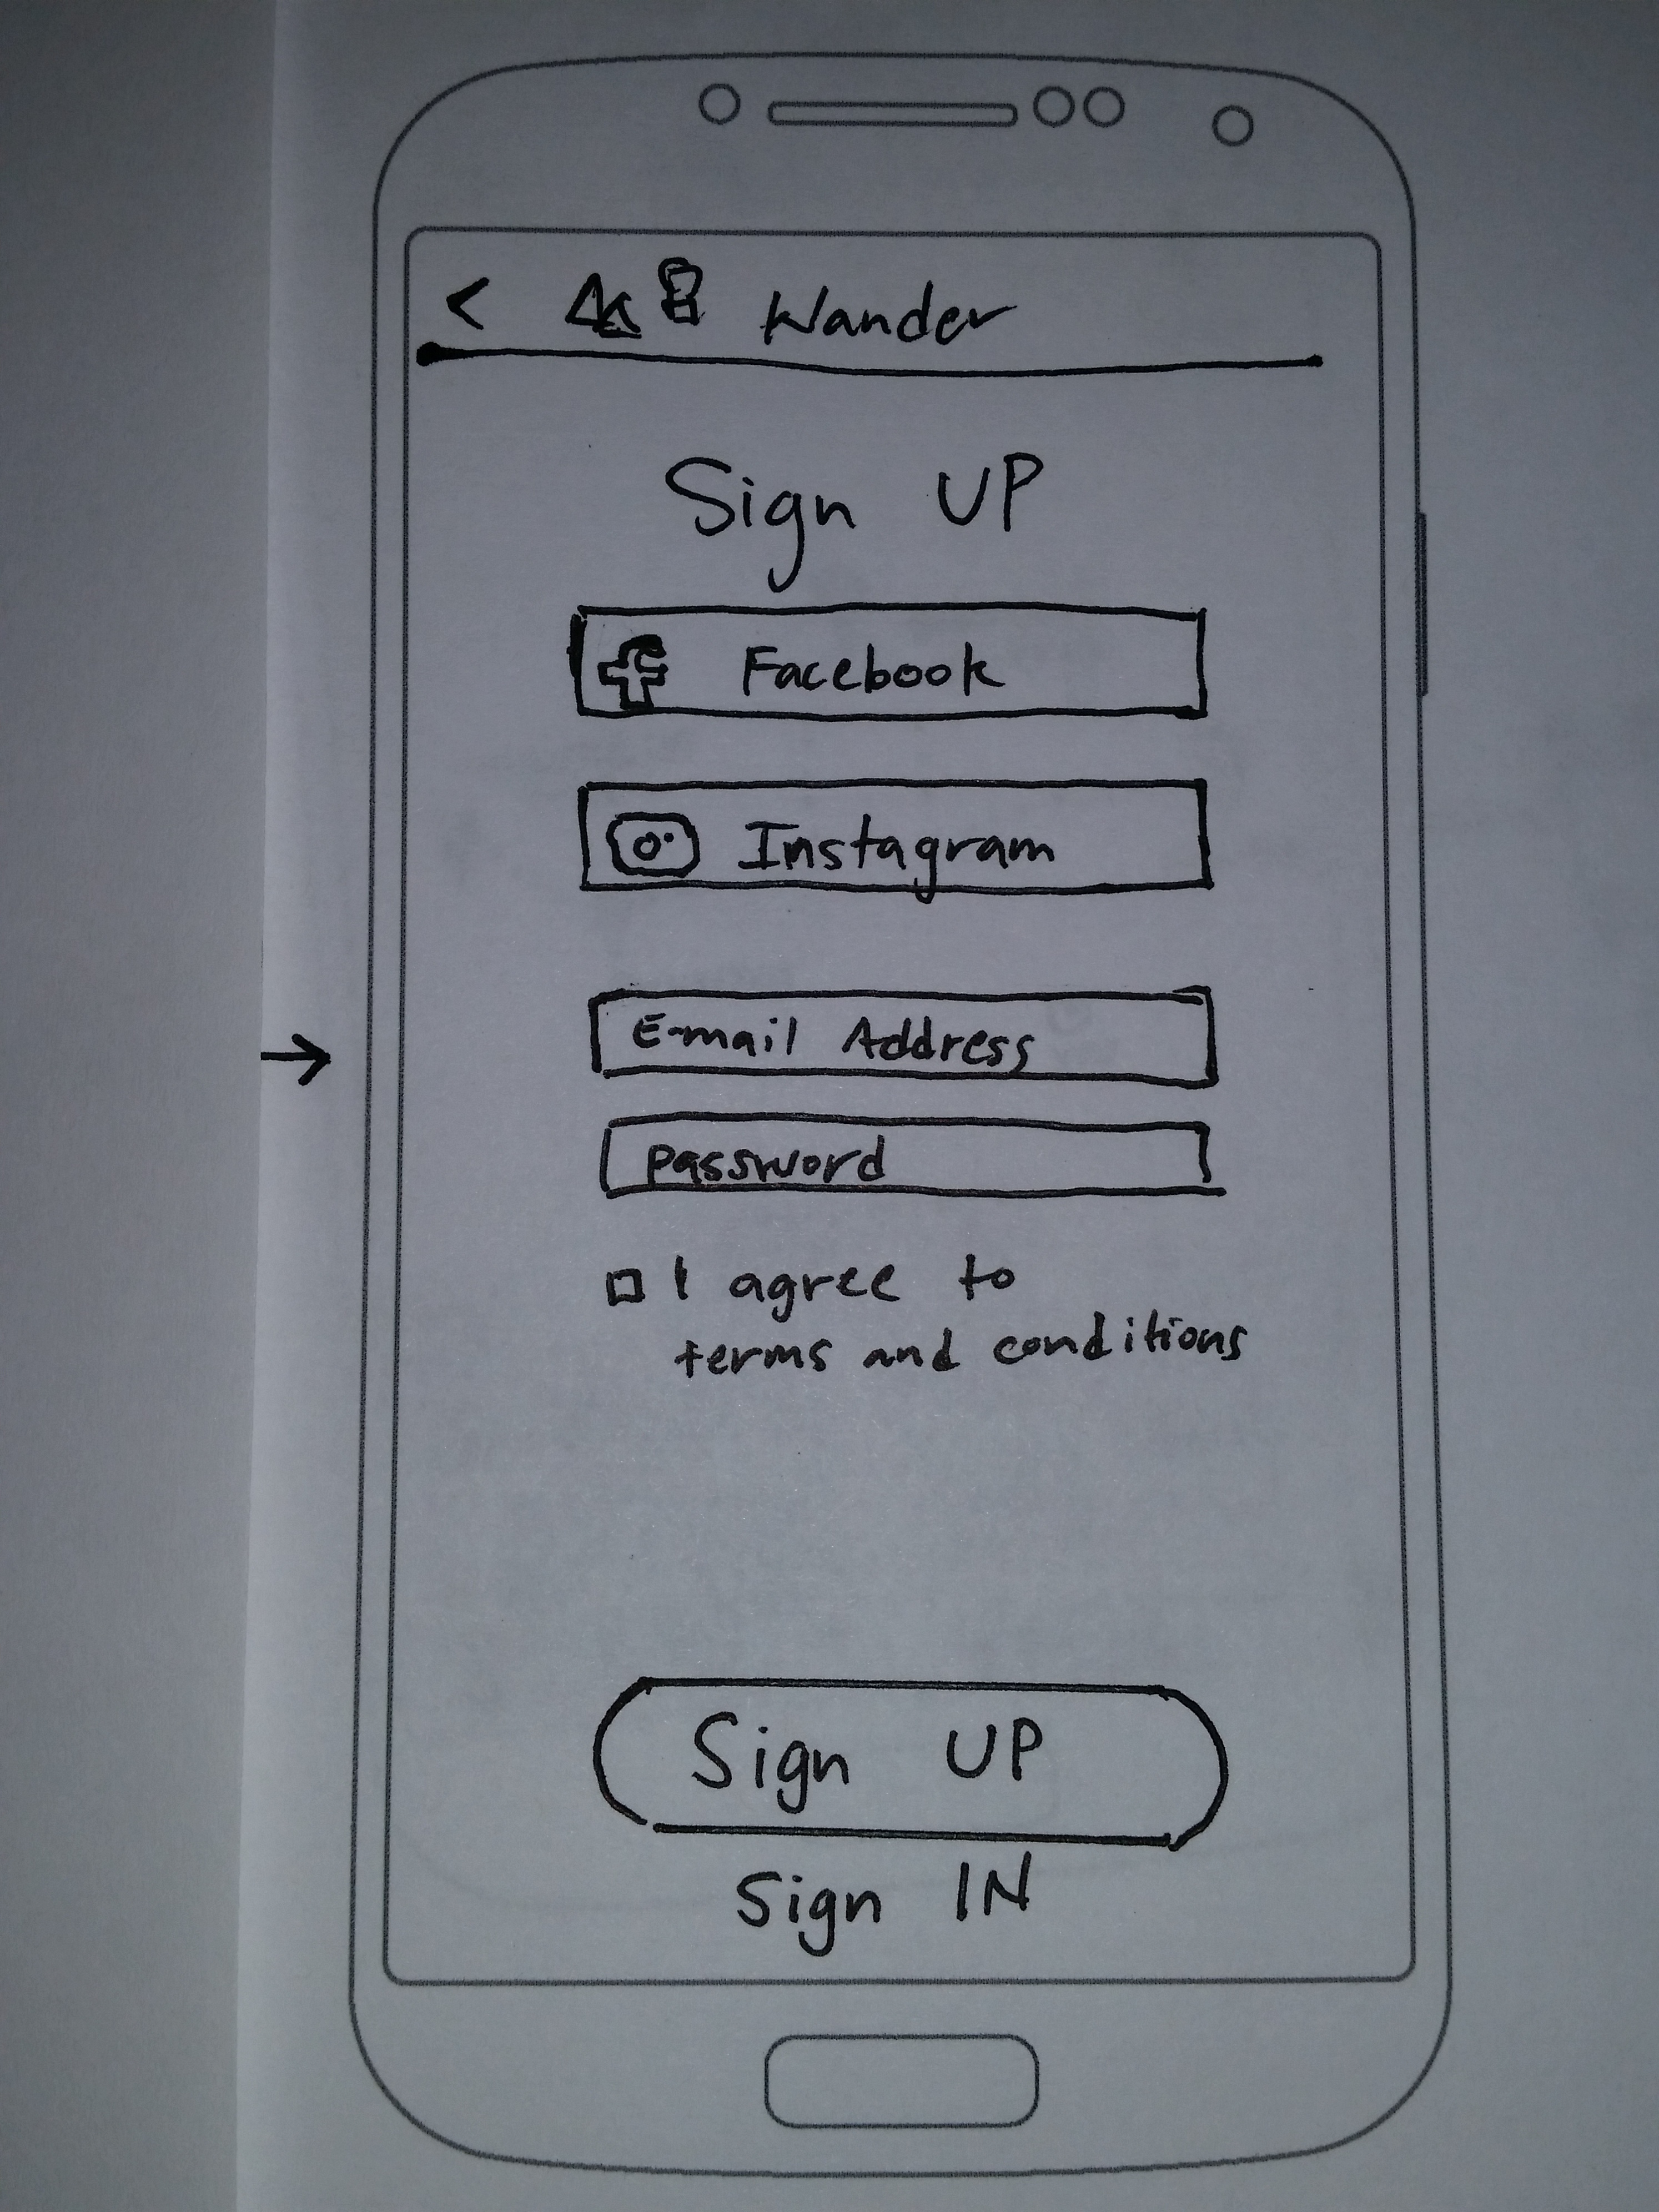 < Wander
Sign UP
Facebook
Instagram
E-mail Address
Password
I agree to
terms and conditions
Sign UP
Sign IN